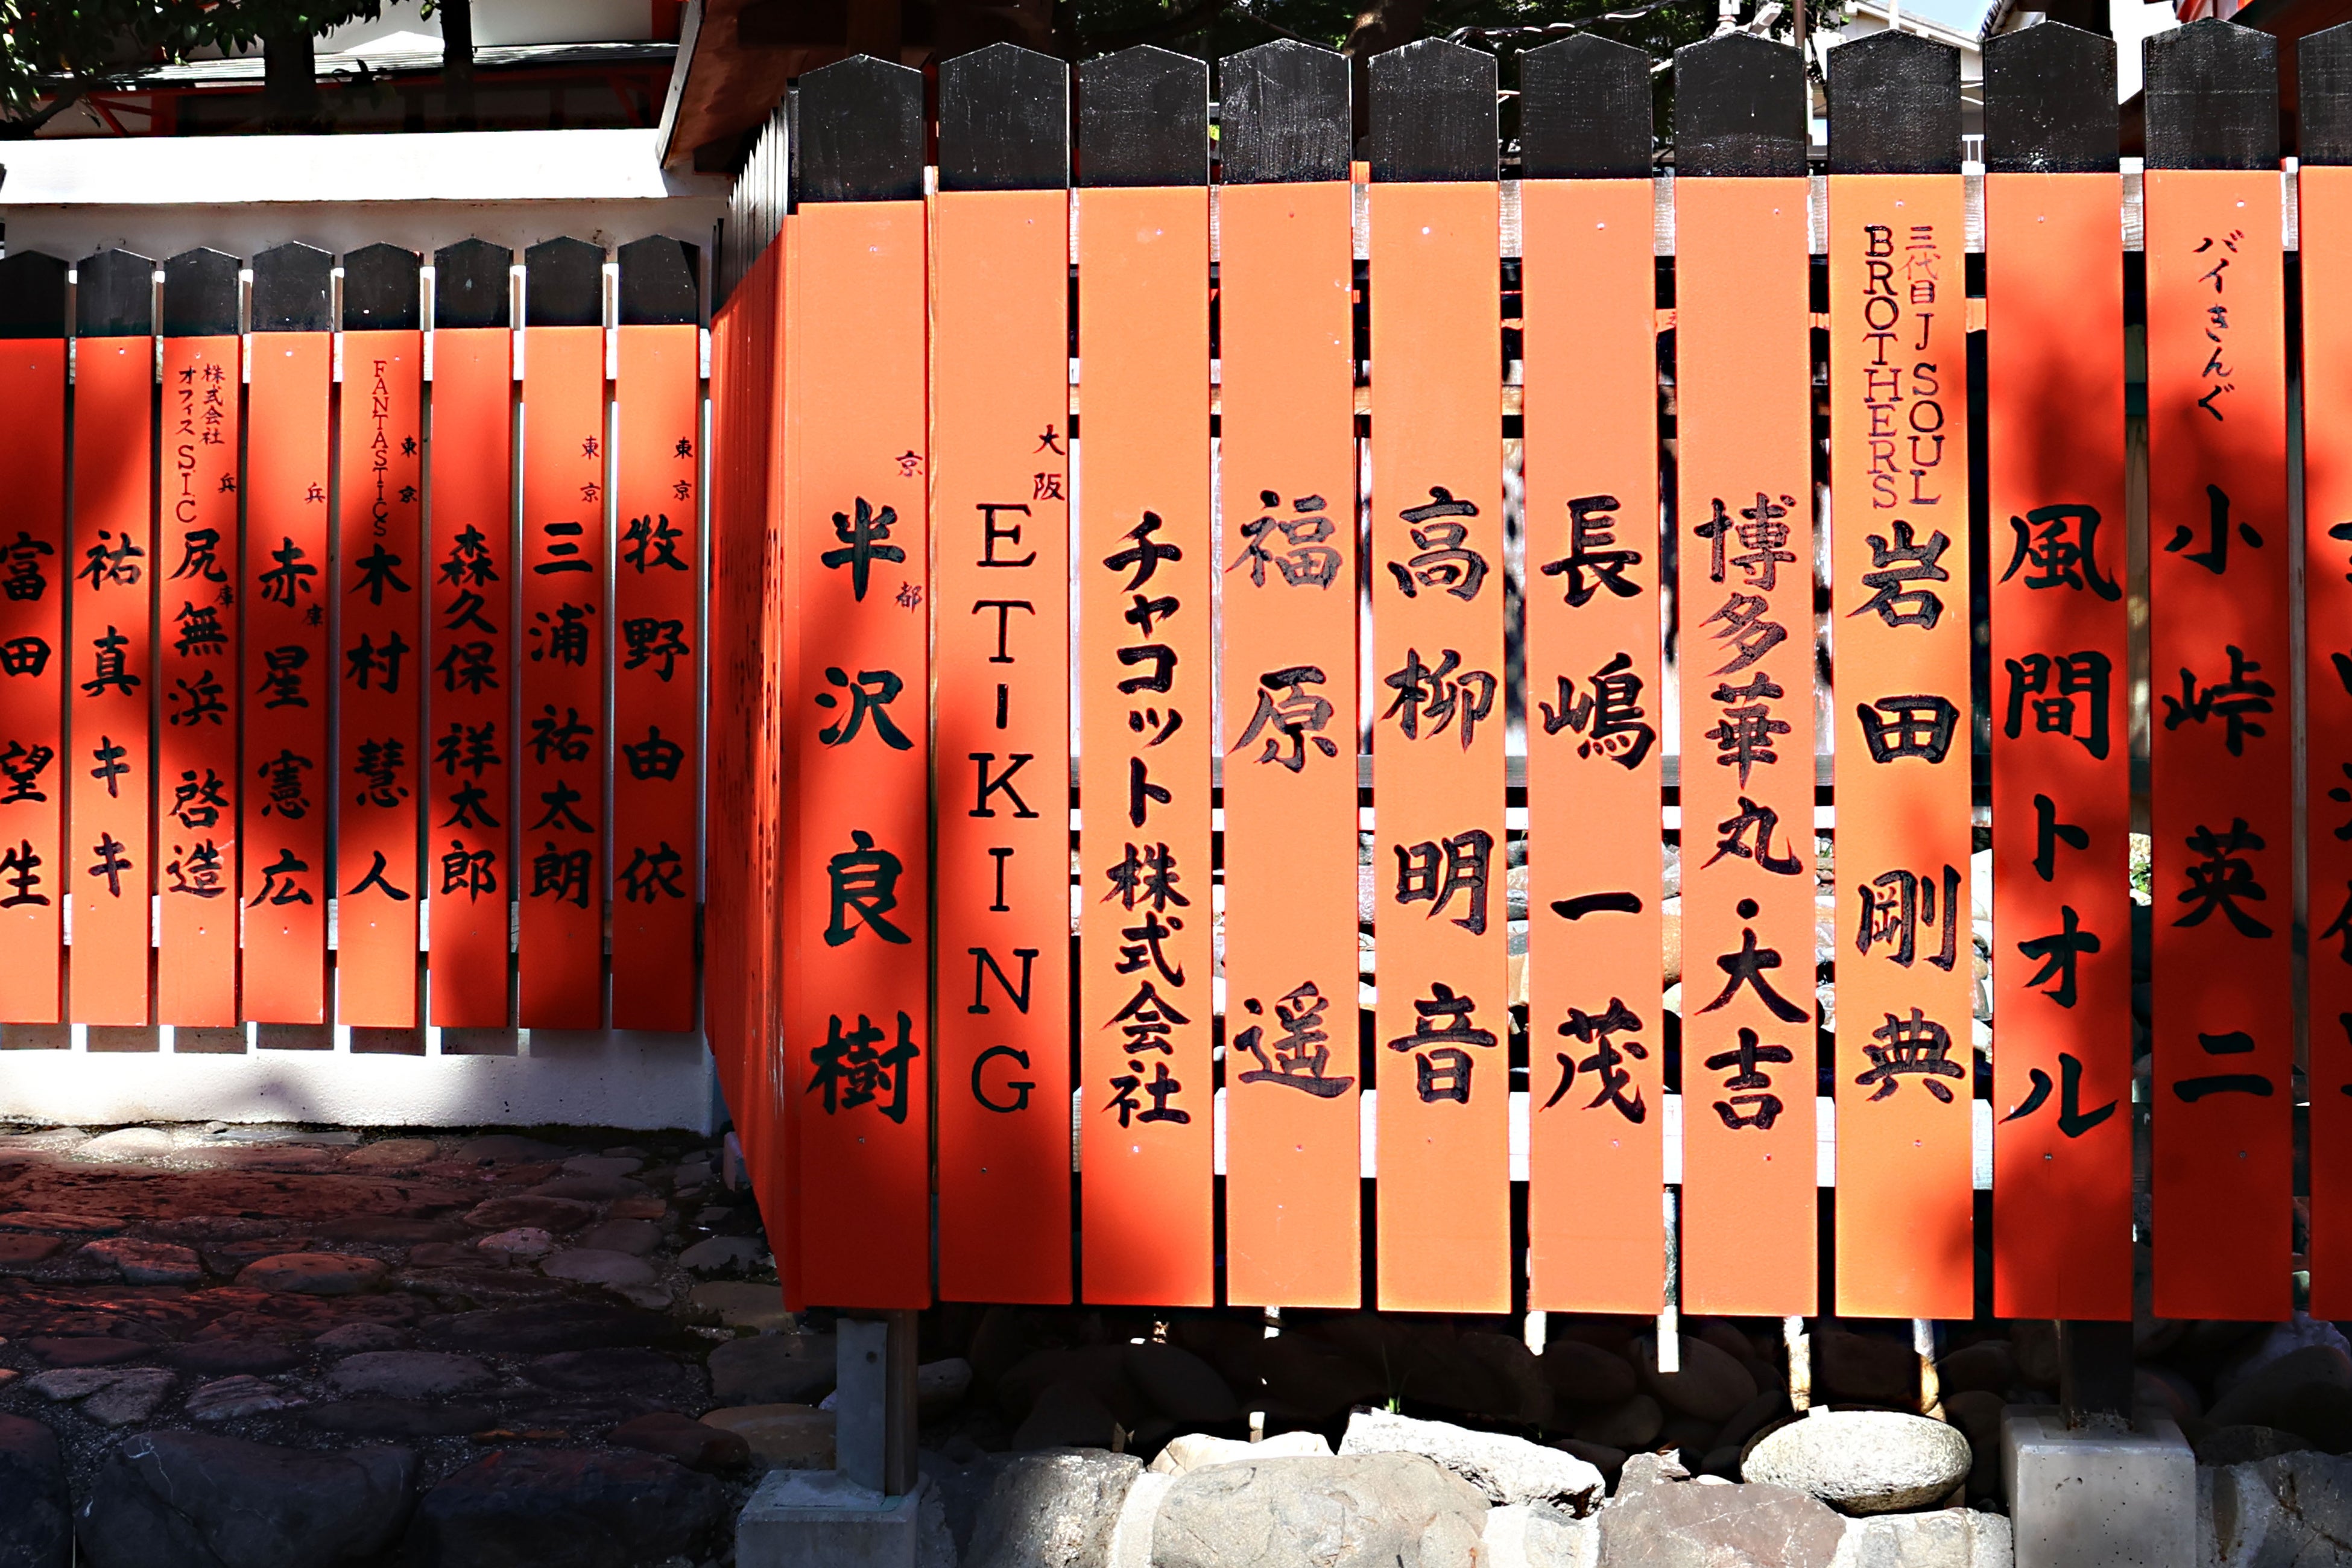 富田望生
祐真キキ
株式会社
オフィスSIC
兵庫
尻無浜啓造
兵庫
赤星憲広
FANTASTICS
東京
木村慧人
森久保祥太郎
東京
三浦祐太朗
東京
牧野由依
京都
半沢良樹
大阪
ET-KING
チャコット株式会社
福原遥
高柳明音
長嶋一茂
博多華丸・大吉
三代目 J SOUL
BROTHERS
岩田剛典
風間トオル
バイきんぐ
小峠英二